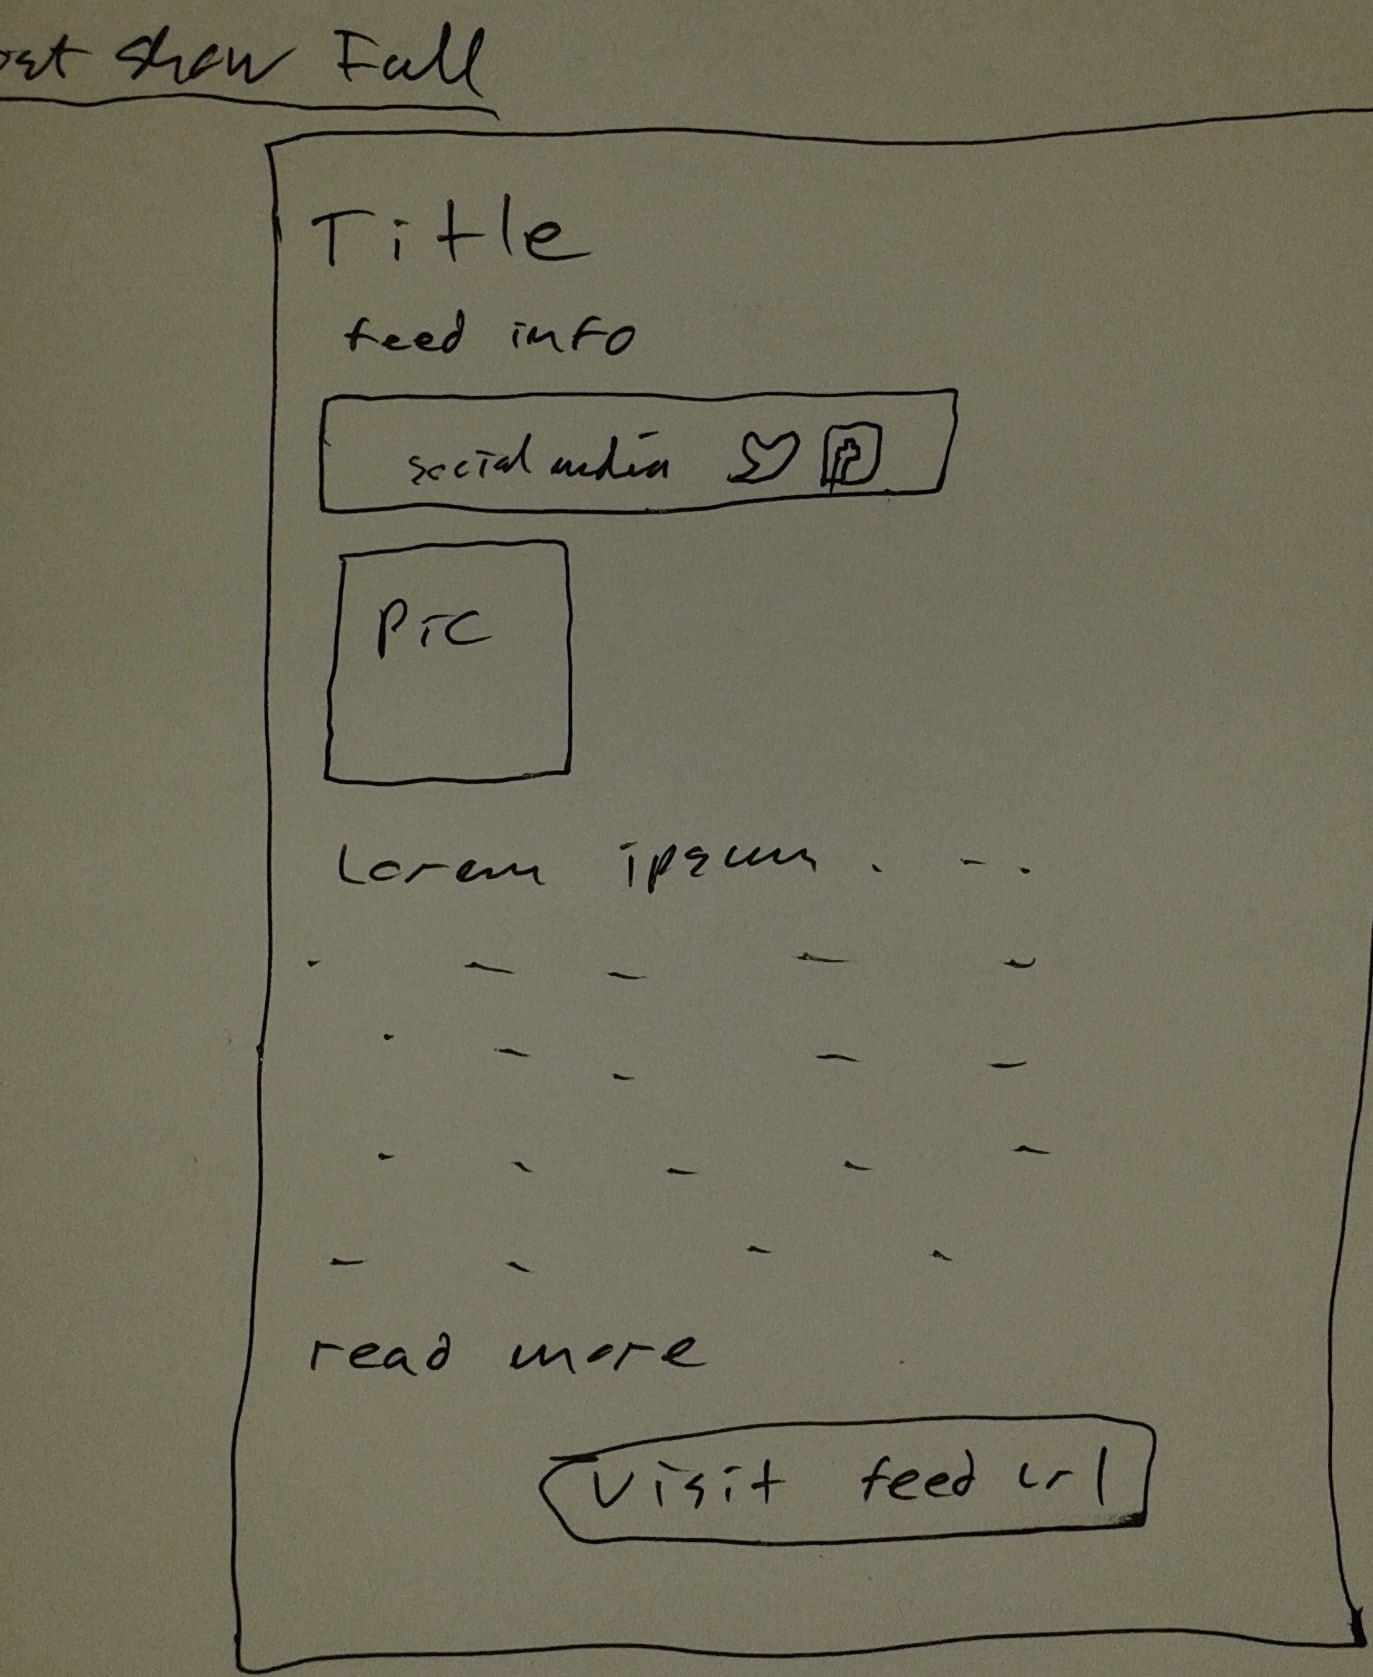 ost show Full
Title
feed info
social media
Pic
Lorem ipsum . - .
read more
visit feed url